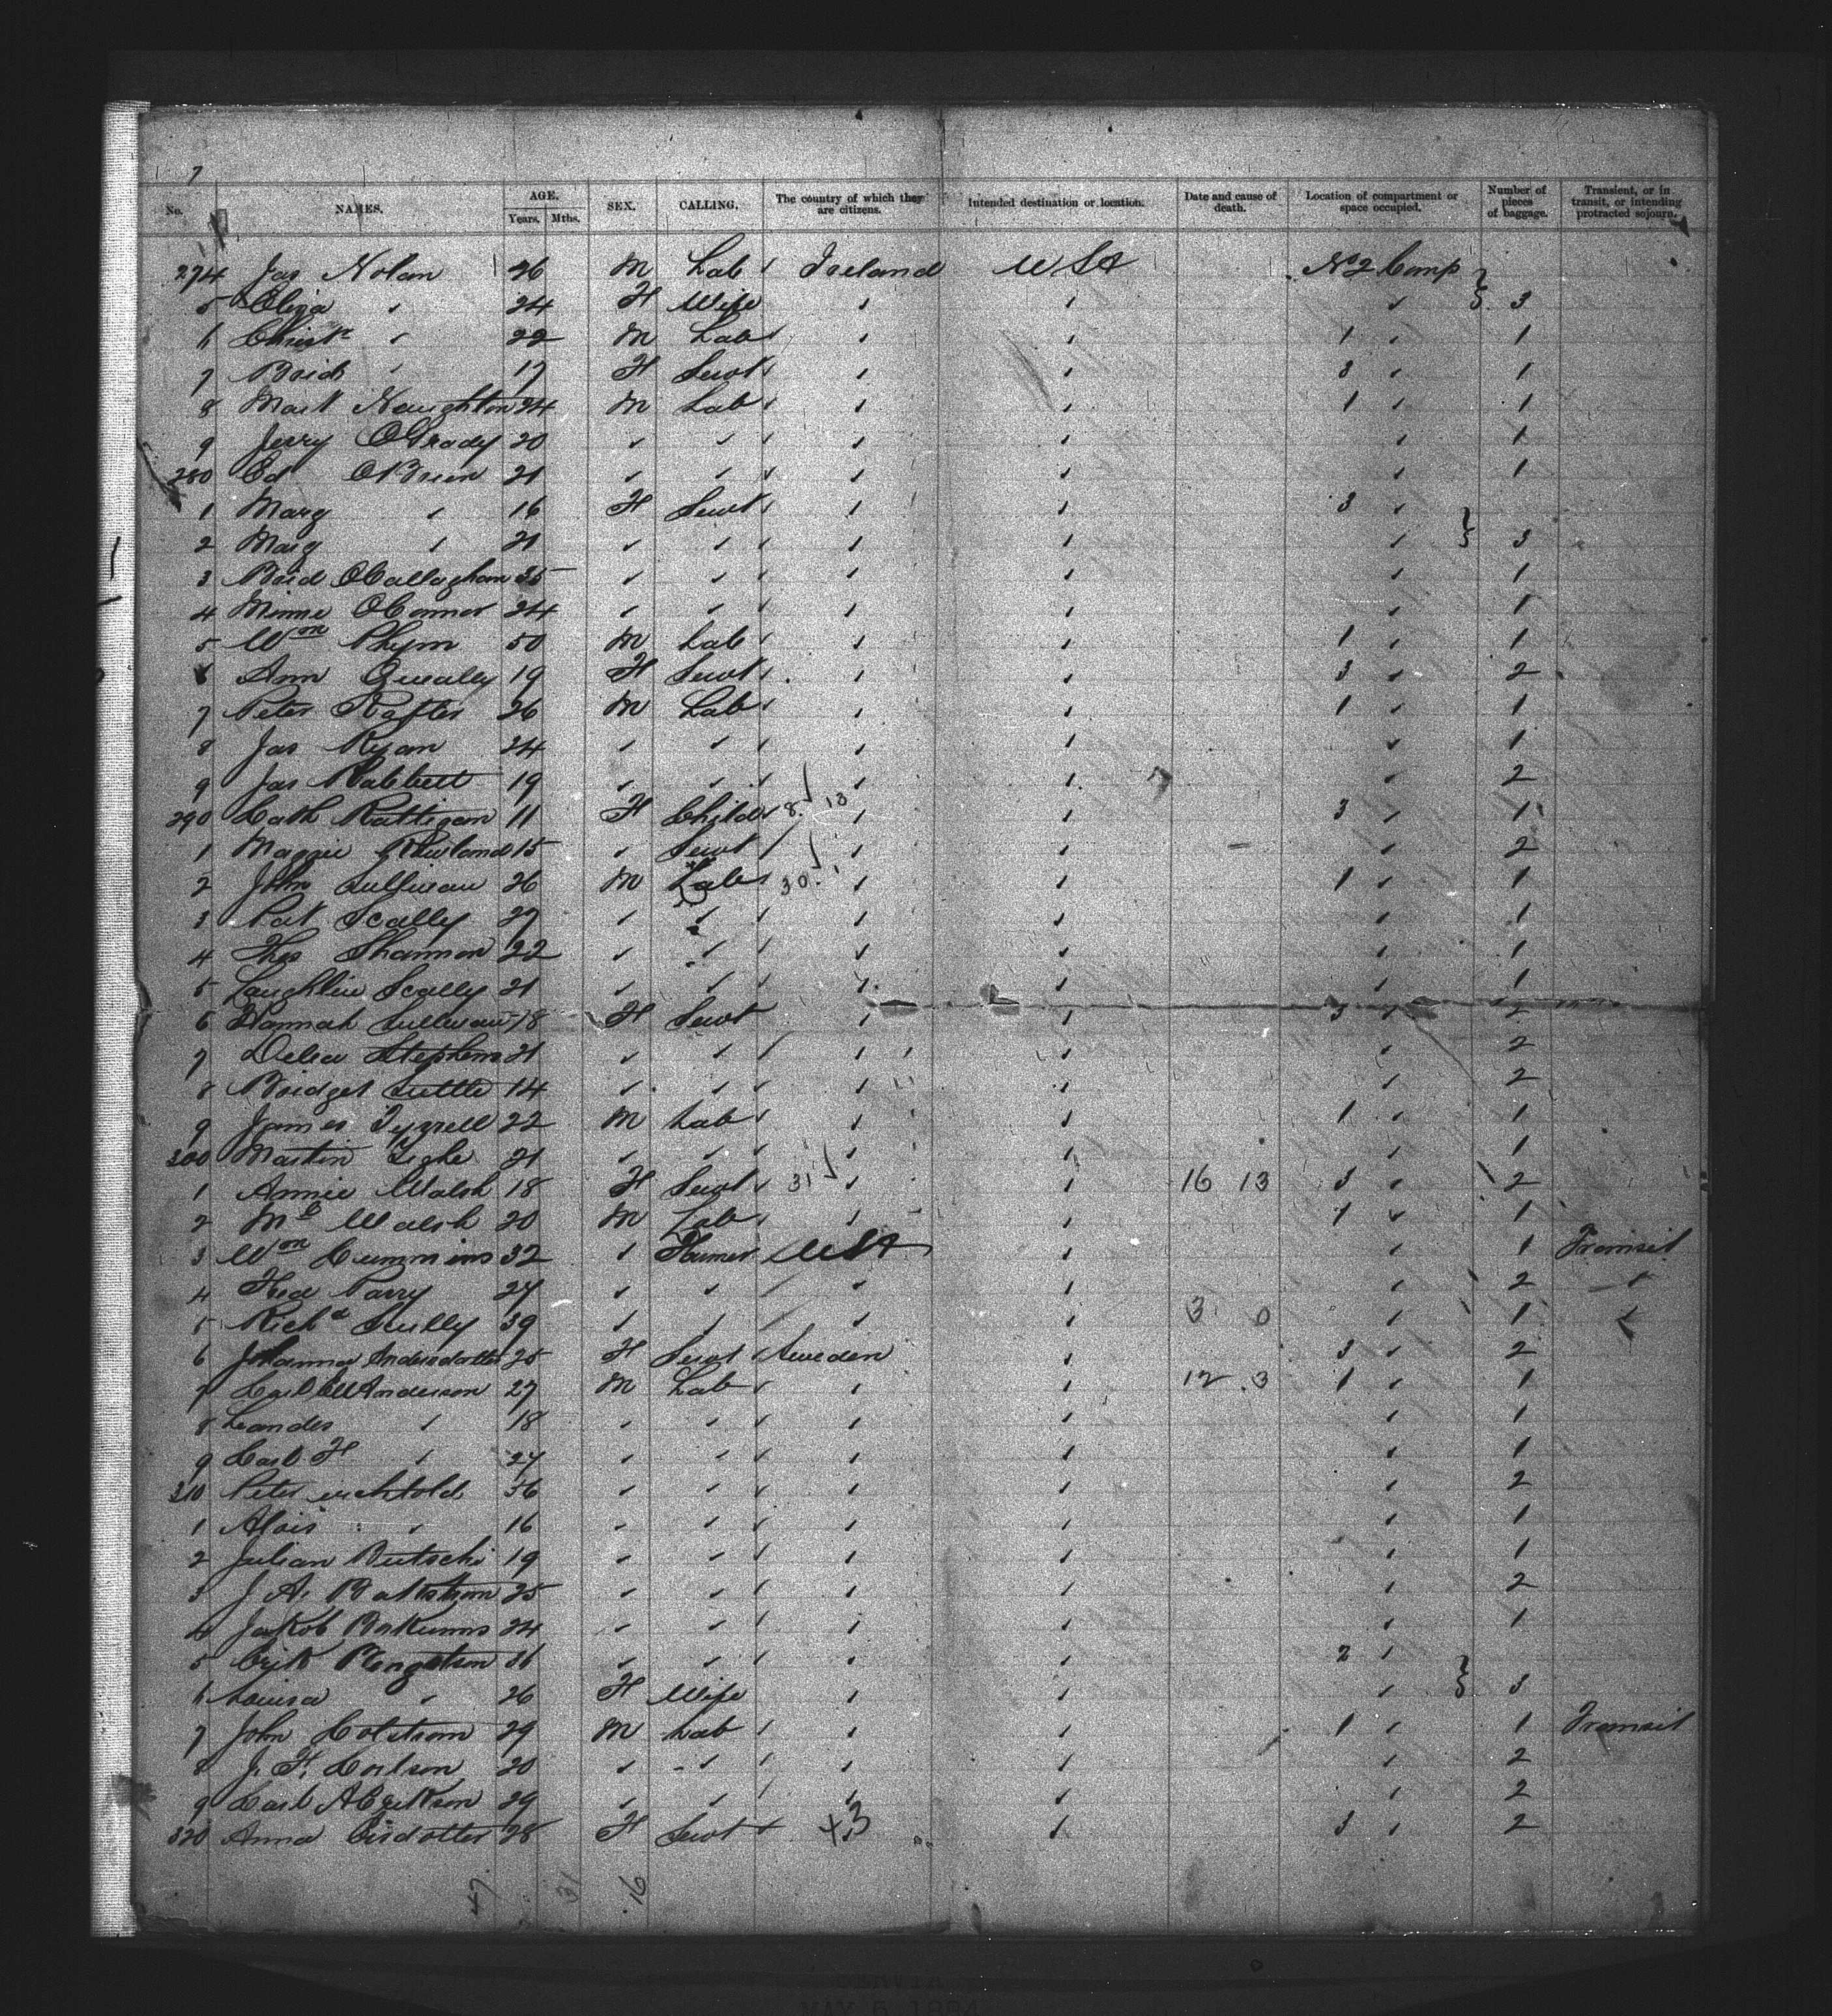 7
No. NAMES. AGE. Years. Mths. SEX. CALLING. The country of which they are citizens. Intended destination or location. Date and cause of death. Location of compartment or space occupied. Number of pieces of baggage. Transient, or in transit, or intending protracted sojourn.
274 Jas Nolan 26 M Lab Ireland USA No 2 Comp
5 Eliza " 24 F Wife " " " } 3
6 Christr " 22 M Lab " " 1 " 1
7 Brid " 17 F Servt " " 3 " 1
8 Mart Naughton 24 M Lab " " 1 " 1
9 Jerry OGrady 20 " " " " " 1
280 Ed OBrien 21 " " " " " 1
1 Mary " 16 F Servt " " 3 "
2 Marg " 21 " " " " " } 3
3 Brid OCallaghan 35 " " " " " 1
4 Minnie OConnor 24 " " " " " 1
5 Wm 50 M Lab " " 1 " 1
6 Ann Queally 19 F Servt " " 3 " 2
7 Peter Rafter 26 M Lab " " 1 " 1
8 Jas Ryan 24 " " " " " 1
9 Jas Rabbett 19 " " " " " 2
290 Cath Rattigan 11 F Child 8 13 " " 3 " 1
1 Maggie Rowland 15 " Servt " " " 2
2 John Sullivan 26 M Lab 30 " " 1 " 1
3 Pat Scally 27 " " " " " 1
4 Thos Shannon 22 " " " " " 1
5 Laughlin Scally 21 " " " " " 1
6 Hannah Sullivan 18 F Servt " " 3 " 2
7 Delia Stephens 21 " " " " " 2
8 Bridget Tuttle 14 " " " " " 2
9 James Tyrrell 22 M Lab " " 1 " 1
300 Martin Tighe 21 " " " " " 1
1 Annie Walsh 18 F Servt 31 " " 16 13 3 " 2
2 Ml Walsh 20 M Lab " " 1 " 1
3 Wm Cummins 32 " Farmer USA " " 1 Transit
4 Fred Parry 27 " " " " " 2 "
5 Richd Scully 39 " " " " 3 0 " 1 "
6 Johanna Andersdotter 25 F Servt Sweden " 3 " 2
7 Carl Anderson 27 M Lab " " 12 3 1 " 1
8 Leander " 18 " " " " " 1
9 Carl F " 27 " " " " " 1
310 Peter 36 " " " " " 2
1 Alois " 16 " " " " " 1
2 Julian Butschi 19 " " " " " 1
3 J. A. 25 " " " " " 2
4 Jakob 24 " " " " " 1
5 Erik Bengtson 31 " " " " 2 "
6 Louisa " 26 F Wife " " " } 3
7 John Colstrom 29 M Lab " " 1 " 1 Transit
8 J. F. Carlson 20 " " " " " 2
9 Carl A Erikson 29 " " " " " 2
320 Anna 28 F Servt +3 " 3 " 2
47 31 16
MAY 5 1884